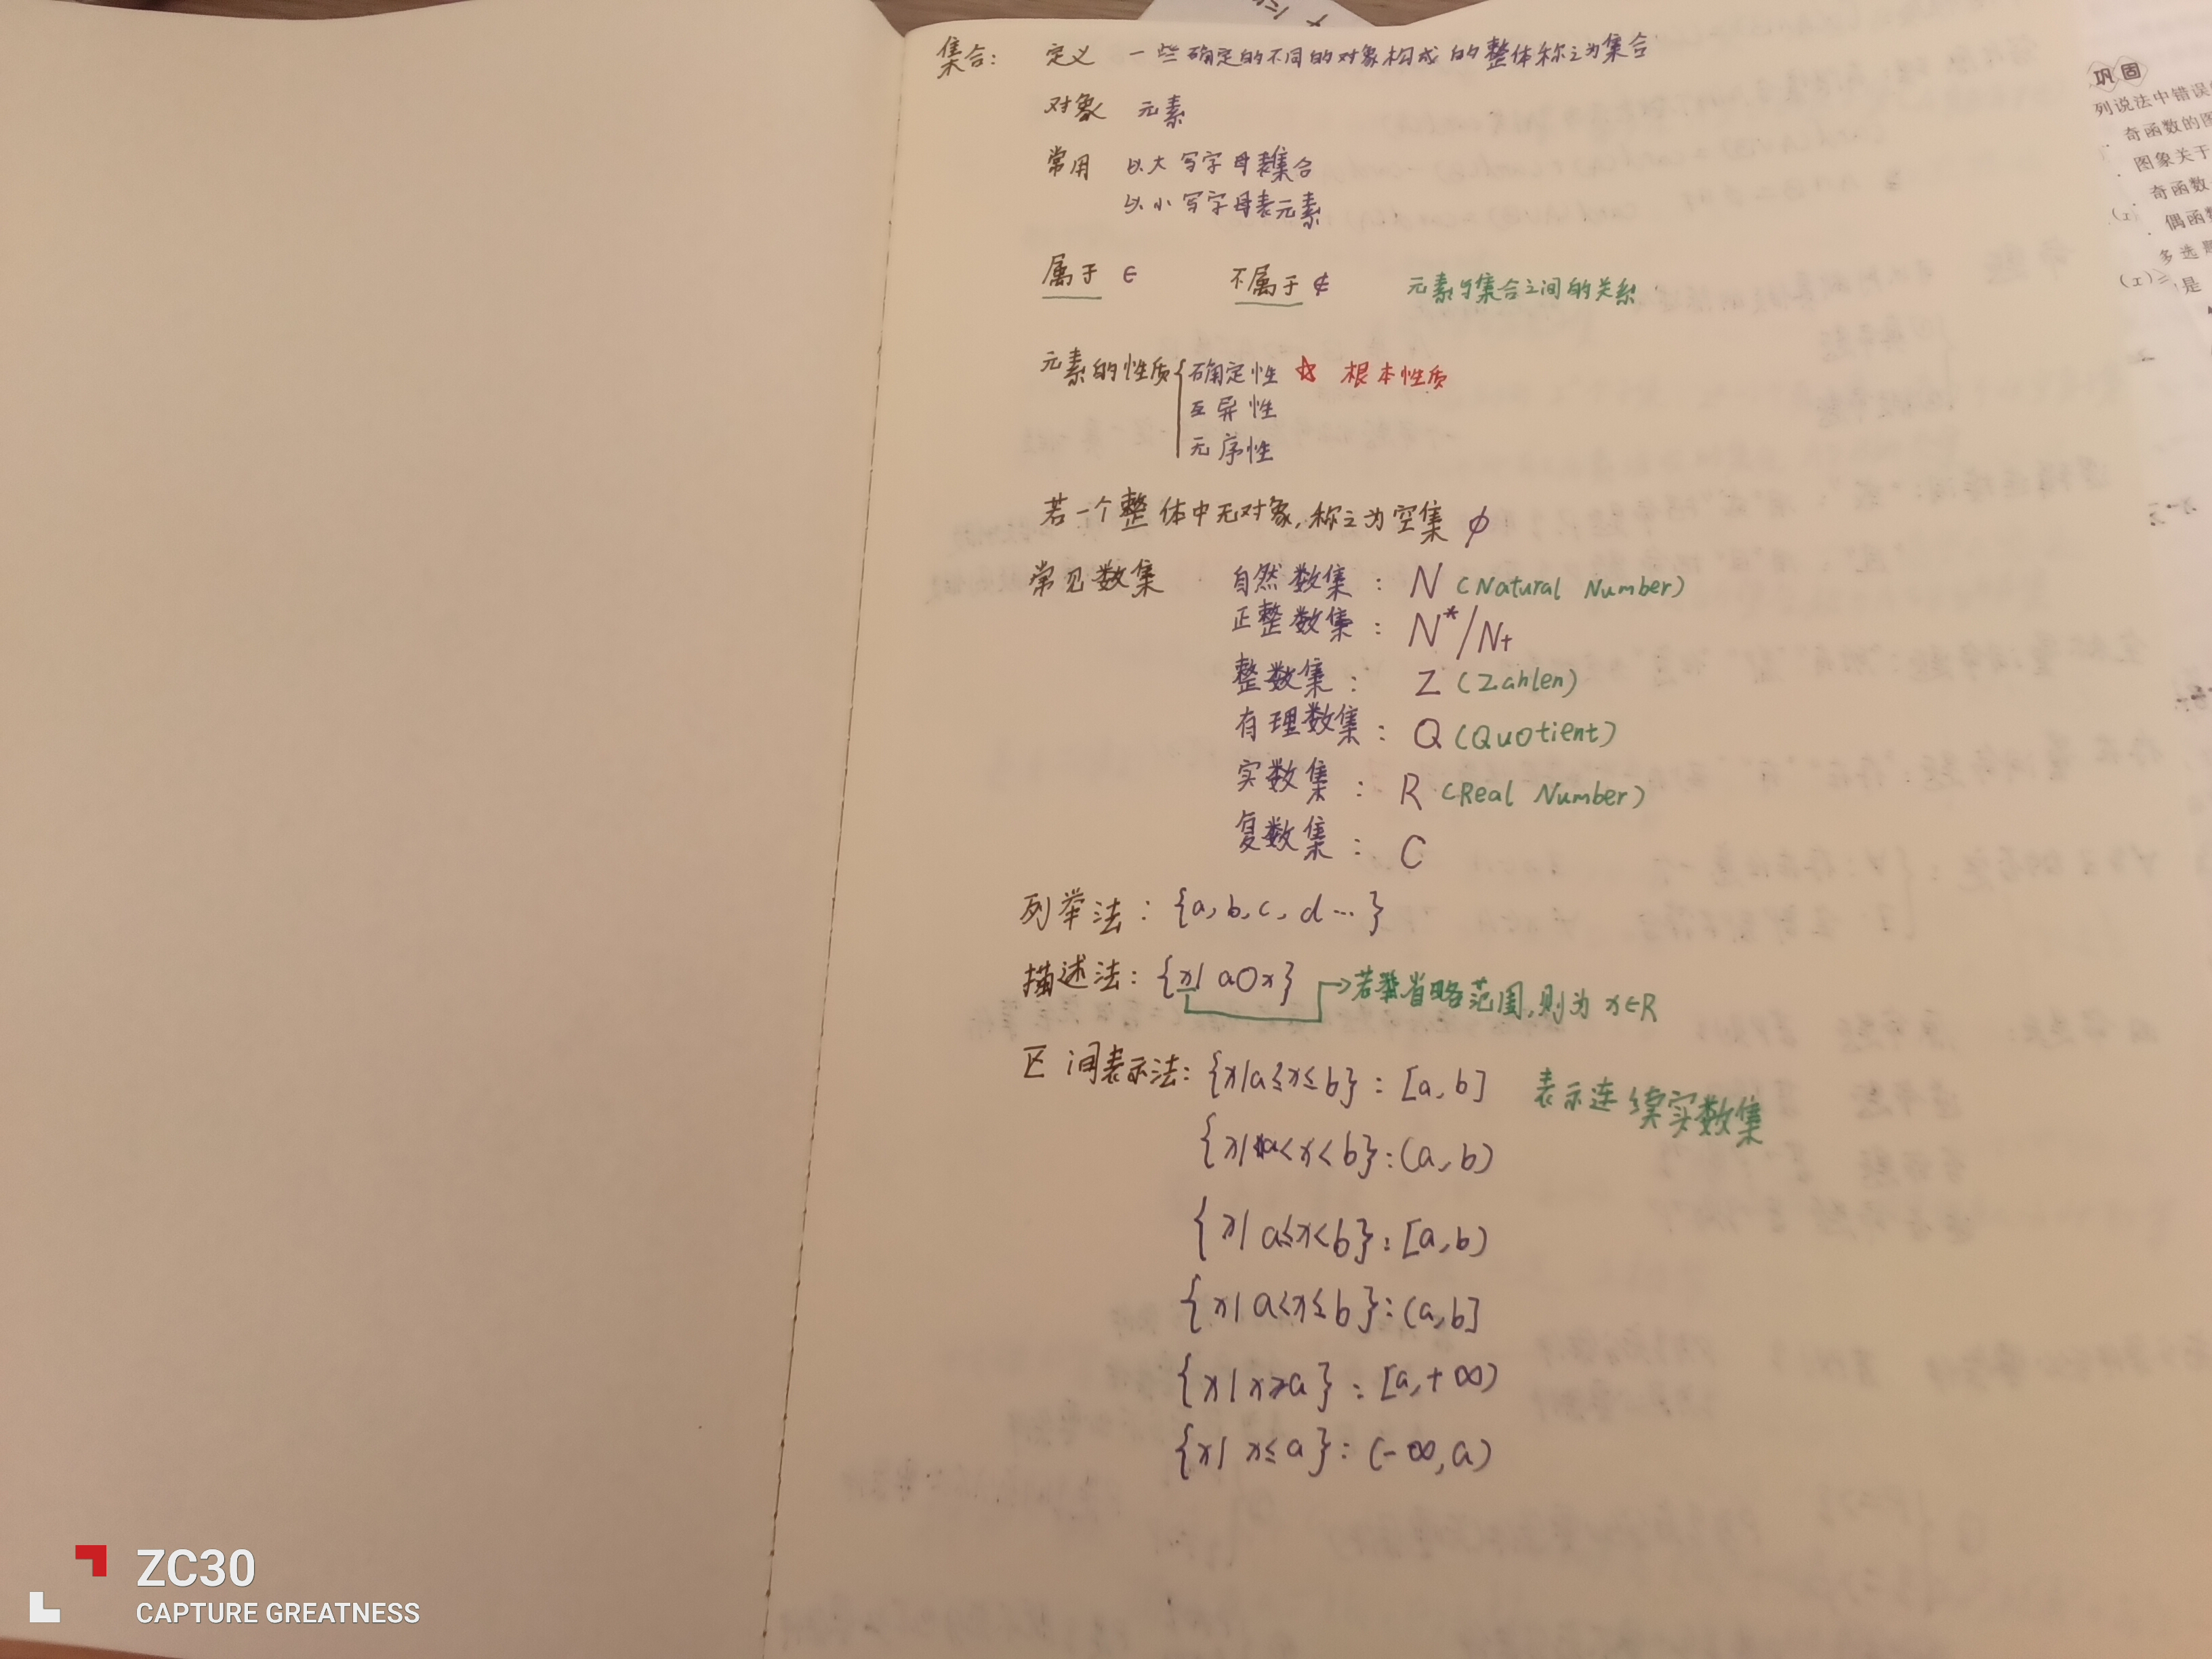 集合: 定义 一些确定的不同的对象构成的整体称之为集合
对象 元素
常用 以大写字母表集合
以小写字母表元素
属于 ∈ 不属于 ∉ 元素与集合之间的关系
元素的性质{确定性 ☆ 根本性质
互异性
无序性
若一个整体中无对象,称之为空集 ∅
常见数集 自然数集: N (Natural Number)
正整数集: N*/N+
整数集: Z (Zahlen)
有理数集: Q (Quotient)
实数集: R (Real Number)
复数集: C
列举法: {a, b, c, d…}
描述法: {x| a○x} →若省略范围,则为 x∈R
区间表示法: {x|a≤x≤b}: [a, b] 表示连续实数集
{x|a<x<b}: (a, b)
{x| a≤x<b}: [a, b)
{x| a<x≤b}: (a, b]
{x| x≥a}: [a, +∞)
{x| x≤a}: (-∞, a)
巩固
列说法中错误
奇函数的图
图象关于
奇函数
偶函数
多选题
(x)≥
是
ZC30
CAPTURE GREATNESS